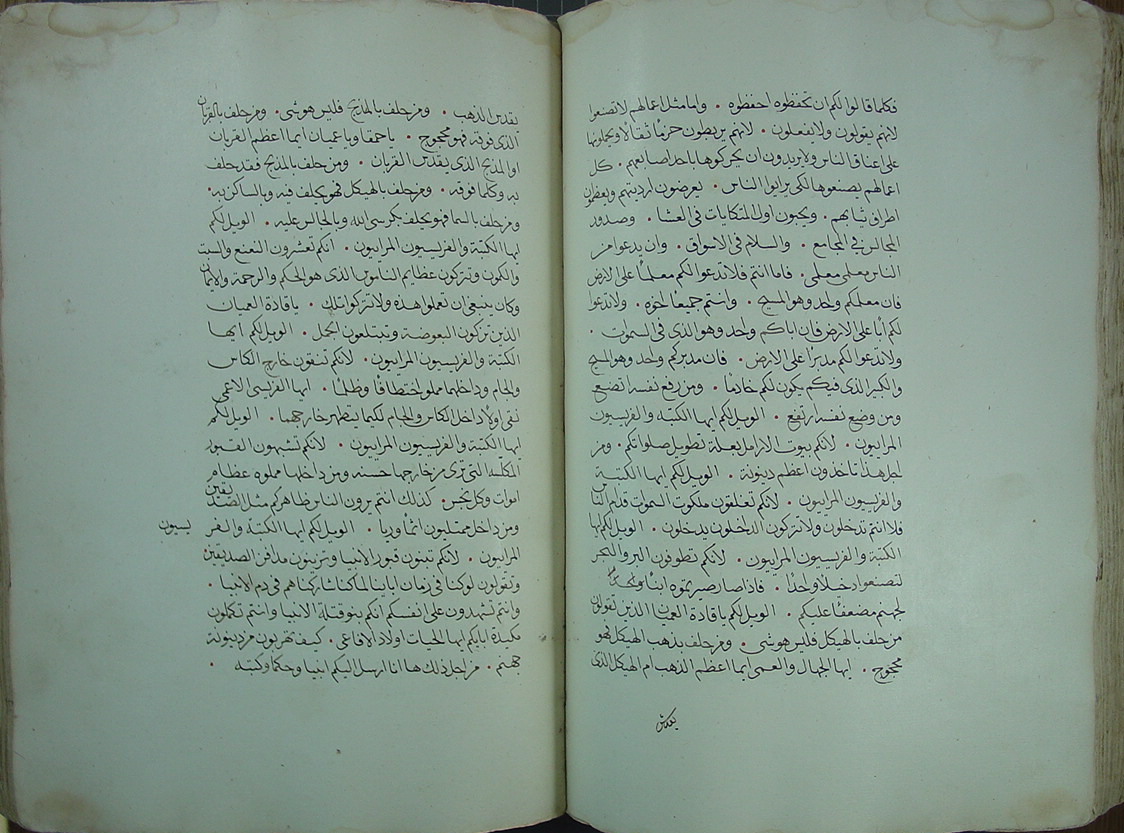 فكلما قالوا لكم ان تحفظوه احفظوه • واما مثل اعمالهم لا تصنعوا
لانهم يقولون ولا يفعلون • لانهم يربطون حزمًا ثقالًا ويحملونها
على اعناق الناس ولا يريدون ان يحركوها باحد اصابعهم • كل
اعمالهم يصنعوها لكي يرايوا الناس • يعرضون ارديتهم ويعظمون
اطراف ثيابهم • ويحبون اول المتكايات في العشا • وصدور
المجالس في المجامع • والسلام في الاسواق • وان يدعوا من
الناس معلمي معلمي • فاما انتم فلا تدعوا لكم معلمًا على الارض
فان معلمكم واحد وهو المسيح • وانتم جميعا اخوه • ولا تدعوا
لكم ابًا على الارض فان اباكم واحد وهو الذى في السموات •
ولا تدعوا لكم مدبرًا على الارض • فان مدبركم واحد وهو المسيح
والكبير الذى فيكم يكون لكم خادمًا • ومن رفع نفسه اتضع
ومن وضع نفسه ارتفع • الويل لكم ايها الكتبه والفريسيون
المراييون • لانكم بيوت الارامل بعلة تطويل صلواتكم • ومن
اجل هذا تاخذون اعظم دينونة • الويل لكم ايها الكتبة
والفريسيون المراييون • لانكم تغلقون ملكوت السموات قدام الناس
فلا انتم تدخلون ولا تتركون الداخلون يدخلون • الويل لكم ايها
الكتبة والفريسيون المراييون • لانكم تطوفون البر والبحر
لتصنعوا دخيلا واحدًا • فاذا صار صيرتموه ابنًا
لجهنم مضعفًا عليكم • الويل لكم يا قادة العميان الذين تقولون
من حلف بالهيكل فليس هو شي • ومن حلف بذهب الهيكل فهو
محجوج • ايها الجهال والعمي ايما اعظم الذهب ام الهيكل الذى
يقدس الذهب • ومن حلف بالمذبح فليس هو شي • ومن حلف بالقربان
الذى فوقه فهو محجوج • يا حمقا ويا عميان ايما اعظم القربان
او المذبح الذى يقدس القربان • ومن حلف بالمذبح فقد حلف
به وكلما فوقه • ومن حلف بالهيكل فهو يحلف فيه وبالساكن به •
ومن حلف بالسما فهو يحلف بكرسي الله وبالجالس عليه • الويل لكم
ايها الكتبة والفريسيون المراييون • انكم تعشرون النعنع والسبت
والكمون وتتركون عظايم الناموس الذى هو الحكم والرحمة والايمان
وكان ينبغي ان تعملوا هذه ولا تتركوا تلك • يا قادة العميان
الذين تركون البعوضة وتبتلعون الجمل • الويل لكم ايها
الكتبة والفريسيون المراييون • لانكم تنقون خارج الكاس
والجام وداخلهما مملو اختطافًا وظلمًا • ايها الفريسي الاعمى
نقي اولًا داخل الكاس والجام لكيما يتطهر خارجهما • الويل لكم
ايها الكتبة والفريسيون المراييون • لانكم تشبهون القبور
المكلسه التي ترى من خارجها حسنه ومن داخلها مملوه عظام
اموات وكل نجس • كذلك انتم يرون الناس ظاهركم مثل الصديقين
ومن داخل ممتليون اثمًا وريا • الويل لكم ايها الكتبة والفر يسيون
المراييون • لانكم تبنون قبور الانبيا وتزينون مدافن الصديقين
وتقولون لو كنا في زمان اباينا لما كنا شاركناهم في دم الانبيا •
وانتم تشهدون على انفسكم انكم بنو قتلة الانبيا وانتم تكملون
مكيدة ابايكم ايها الحيات اولاد الافاعي • كيف تهربون من دينونة
جهنم • من اجل ذلك ها انا ارسل اليكم انبيا وحكما وكتبه •